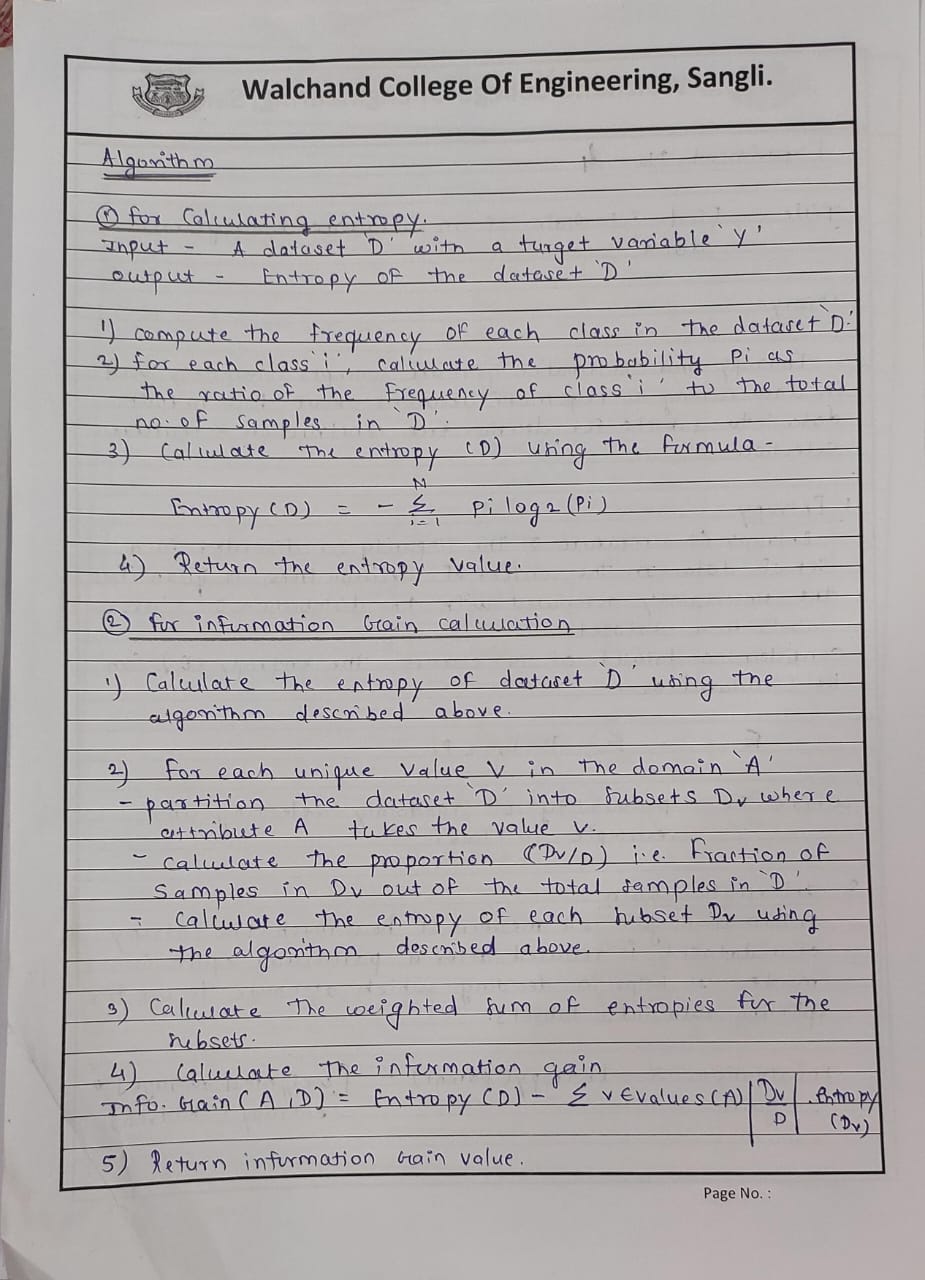 Walchand College Of Engineering, Sangli.
Algorithm
① for Calculating entropy.
Input - A dataset 'D' with a target variable 'Y'
output - Entropy of the dataset 'D'
1) compute the frequency of each class in the dataset 'D'
2) for each class 'i', calculate the probability Pi as
the ratio of the frequency of class 'i' to the total
no. of samples in 'D'.
3) Calculate the entropy (D) using the formula -
Entropy (D) = - N∑i=1 Pi log2 (Pi)
4) Return the entropy value.
② for information Gain calculation
1) Calculate the entropy of dataset 'D' using the
algorithm described above.
2) for each unique value v in the domain 'A'
- partition the dataset 'D' into subsets Dv where
attribute A takes the value v.
- calculate the proportion (Dv/D) i.e. Fraction of
samples in Dv out of the total samples in 'D'.
- Calculate the entropy of each subset Dv using
the algorithm described above.
3) Calculate the weighted sum of entropies for the
subsets.
4) Calculate the information gain
Info. Gain (A,D) = Entropy (D) - ∑ v∈values(A) |Dv/D| . Entropy
(Dv)
5) Return information Gain value.
Page No. :